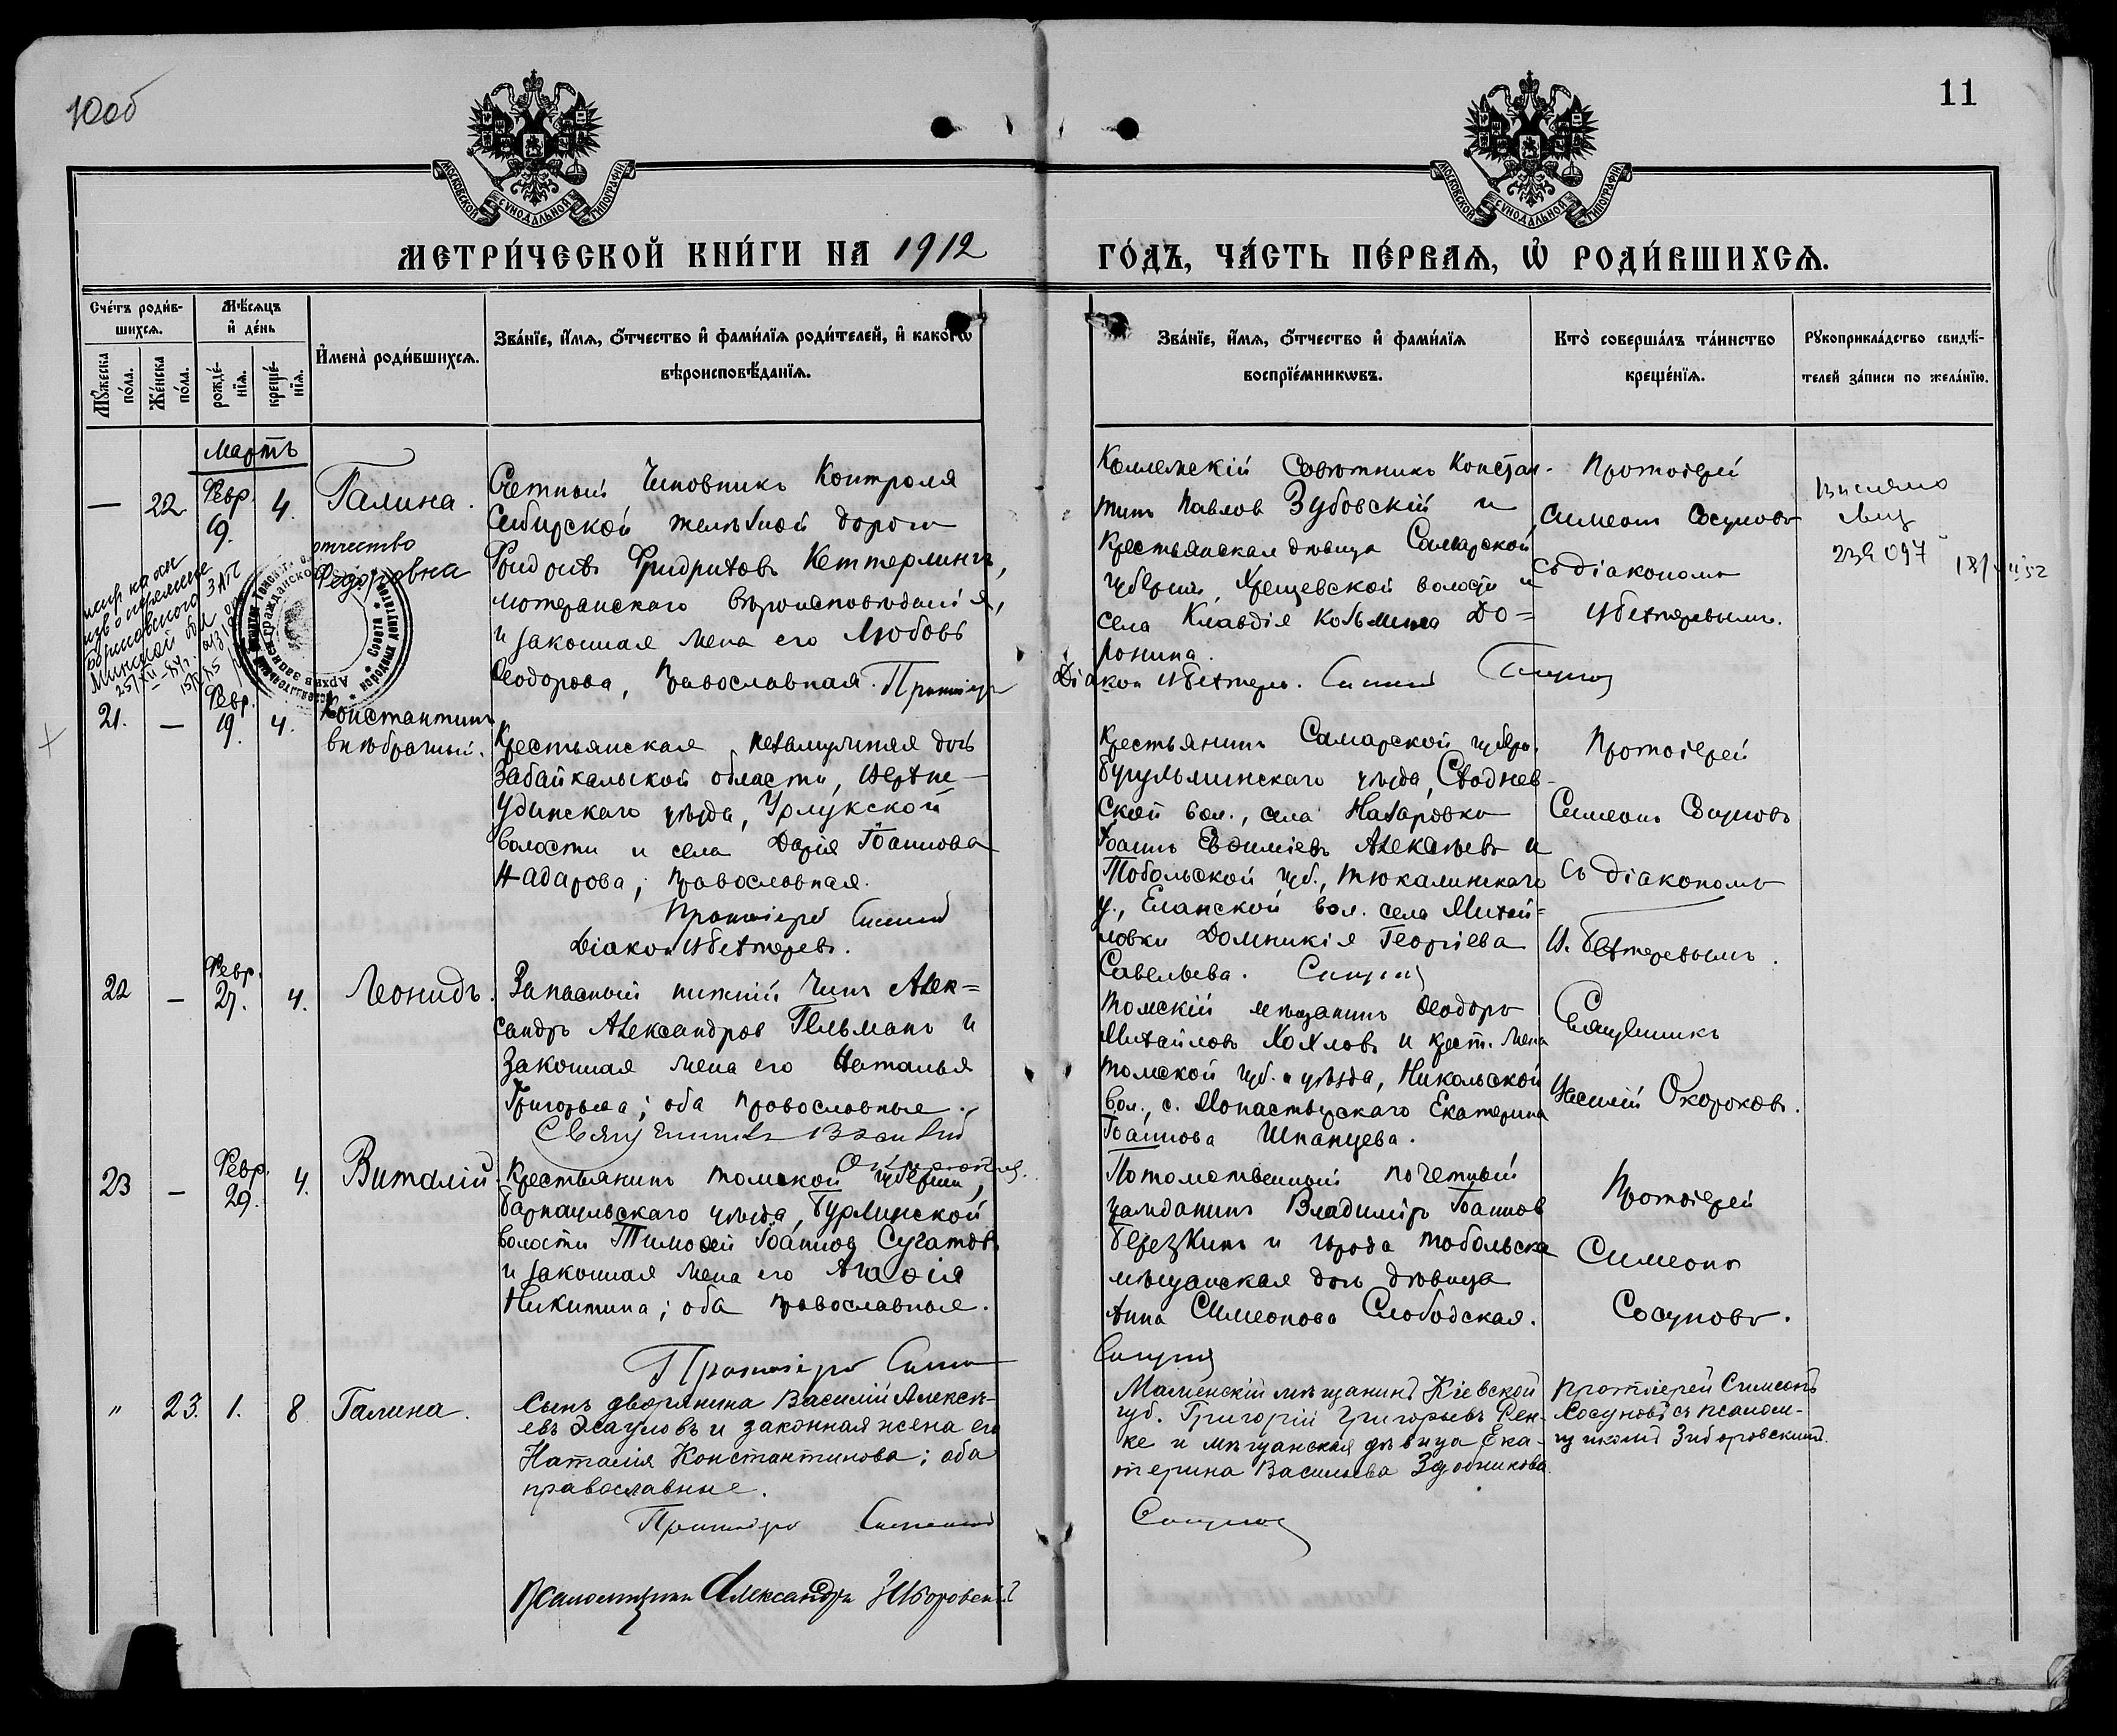 10об
11
МОСКОВСКОЙ СУНОДАЛЬНОЙ ТИПОГРАФІИ.
МОСКОВСКОЙ СУНОДАЛЬНОЙ ТИПОГРАФІИ.
МЕТРИ́ЧЕСКОЙ КНИ́ГИ НА 1912
ГО́ДЪ, ЧА́СТЬ ПЕ́РВАѦ, Ѡ҆ РОДИ́ВШИХСѦ.
Сче́тъ роди́в-
шихсѧ.
Мꙋ́жеска по́ла.
Же́нска по́ла.
Мѣ́сѧцъ
и҆ де́нь
рожде́-
нїѧ.
креще́-
нїѧ.
И҆мена̀ роди́вшихсѧ.
Зва́нїе, и҆́мѧ, ѻ҆́тчество и҆ фами́лїѧ роди́телей, и҆ како́гѡ
вѣроисповѣ́данїѧ.
Зва́нїе, и҆́мѧ, ѻ҆́тчество и҆ фами́лїѧ
воспрїе́мникѡвъ.
Кто̀ соверша́лъ та́инство
креще́нїѧ.
Рꙋкоприкла́дство свидѣ́-
телей за́писи по жела́нїю.
Мартъ
—
22
Февр.
19.
4.
Галина.
отчество
Федоровна
Счетный Чиновникъ Контроля
Сибирской желѣзной дороги
Фридриховъ Кеттерлингъ,
лютеранскаго вѣроисповѣданія,
и законная жена его Любовь
Ѳеодорова, Православная. Протоіерей
Коллежскій Совѣтникъ Констан-
тинъ Павлов Зубовскій и
Крестьянская дѣвица Самарской
губерніи, Хрящевской волости и
села Клавдія Козьмина До=
ронина.
Діакон И Бехтерев. Симеон Сосунов
Протоіерей
Симеонъ Сосуновъ
Съ діакономъ
И Бехтеревымъ.
21.
—
Февр.
19.
4.
Константинъ
внѣбрачный.
Крестьянская незамужняя дочь
Забайкальской области, Верхне-
удинскаго уѣзда, Урлукской
волости и села Дарія Іоаннова
Надарова, Православная.
Протоіерей Симеон
Діакон И Бехтерев.
Крестьянинъ Самарской губерн.
Бугульминскаго уѣзда,
ской вол., села Назаровки
Іоаннъ Евѳиміевъ Алексѣевъ и
Тобольской губ., Тюкалинскаго
у., Еланской вол. села Михай=
ловки Домникія Георгіева
Савельева. Сосунов
Протоіерей
Симеонъ Сосуновъ
Съ діакономъ
И. Бехтеревымъ.
22
—
Февр.
27.
4.
Леонидъ.
Запасный нижній Чинъ Алек=
сандръ Александров Гельманъ и
Законная жена его Наталья
Григорьева; оба православные.
Священникъ Василій
Окороков.
Томскій мѣщанинъ Ѳеодоръ
Михайловъ Хохловъ и крест. жена
Томской губ. и уѣзда, Никольской
вол., с. Монастырскаго Екатерина
Іоаннова Шпанцева.
Священникъ
Василій Окороковъ.
23
—
Февр.
29.
4.
Виталій
Крестьянинъ Томской губерніи,
Барнаульскаго уѣзда, Бурлинской
волости Тимоѳей Іоаннов Сугатовъ
и законная жена его Агаѳія
Никитина; оба православные.
Протоіерей Симеон
Потомственный почетный
гражданинъ Владиміръ Іоаннов
Березкинъ и города Тобольска
мѣщанская дочь дѣвица
Анна Симеонова Слободская.
Сосунов
Протоіерей
Симеонъ
Сосуновъ.
"
23.
1.
8
Галина.
Сынъ дворянина Василій Алексѣ-
евъ Эсауловъ и законная жена его
Наталія Константинова; оба
православные.
Протоіерей Симеон
Псаломщикъ Александръ Зиборовскій
губ. Григорій Григорьевъ Рен-
ке и мѣщанская дѣвица Ека-
терина Васильева Здобникова.
Сосунов
Протоіерей Симеонъ
Сосуновъ съ псалом-
щикомъ Зиборовскимъ.